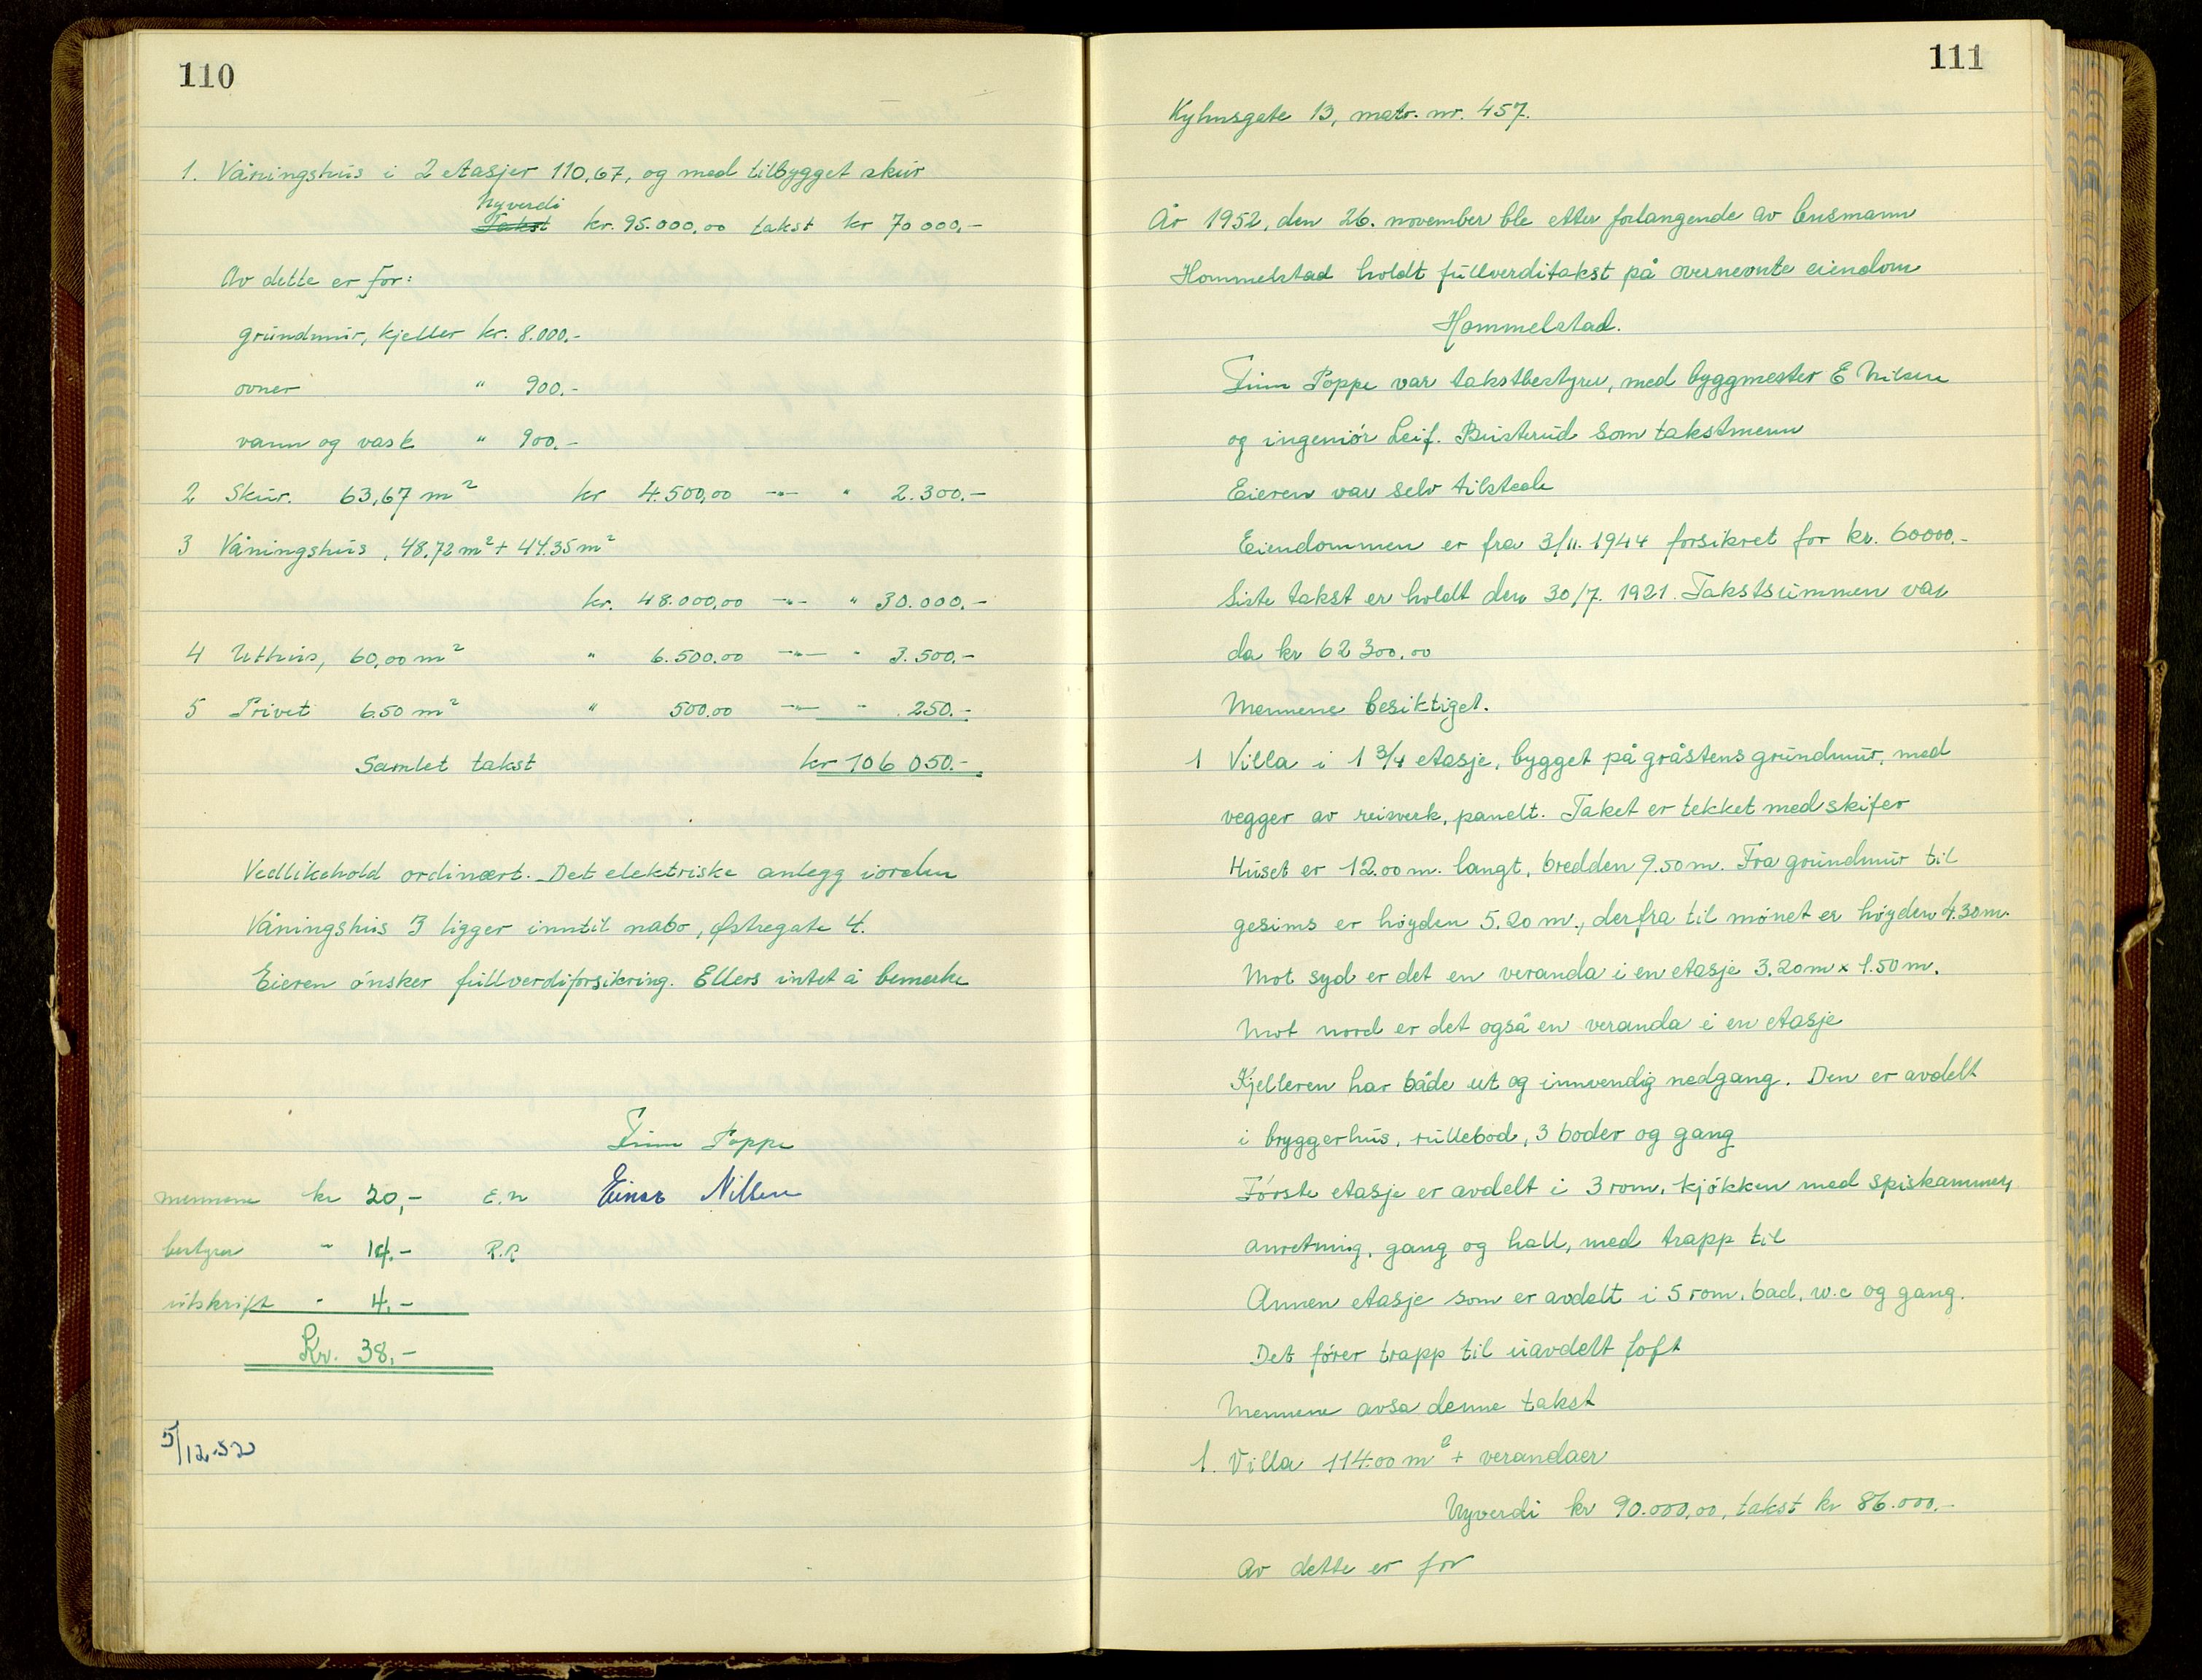 110
1. Våningshus i 2 etasjer 110,67, og med tilbygget skur
Nyverdi
Takst kr. 95.000,00 takst kr 70 000,-
Av dette er for:
grundmur, kjeller kr. 8.000.-
ovner " 900.-
vann og vask " 900.-
2 Skur. 63,67 m² kr 4.500,00 -"- " 2.300.-
3 Våningshus, 48.72 m² + 44.35 m²
kr. 48.000,00 -"- " 30.000.-
4 Uthus, 60,00 m² " 6.500.00 -"- " 3.500.-
5 Privet 6.50 m² " 500.00 -"- " 250.-
Samlet takst kr 106 050.-
Vedlikehold ordinært. Det elektriske anlegg iorden
Våningshus 3 ligger inntil nabo, Østregate 4.
Eieren ønsker fullverdiforsikring. Ellers intet å bemerke
Finn Poppe
mennene kr 20,- E.N Einar Nilsen
bestyrer " 14.- R.R
utskrift " 4.-
Kr. 38,-
5/12-52
111
Kyhnsgate 13, matr. nr. 457.
År 1952, den 26. november ble etter forlangende av lensmann
Hommelstad holdt fullverditakst på overnevnte eiendom
Hommelstad.
Finn Poppe var takstbestyrer, med byggmester E Nilsen
og ingeniør Leif. Busterud som takstmenn
Eieren var selv tilstede
Eiendommen er fra 3/11. 1944 forsikret for kr. 60000.-
Siste takst er holdt den 30/7. 1921. Takstsummen var
da kr 62 300.00
Mennene besiktiget.
1 Villa i 1 3/4 etasje, bygget på gråstens grundmur, med
vegger av reisverk, panelt. Taket er tekket med skifer
Huset er 12.00 m. langt, bredden 9.50 m. Fra grundmur til
gesims er høyden 5.20 m., derfra til mønet er høyden 4.30 m.
Mot syd er det en veranda i en etasje 3.20 m x 1.50 m.
Mot nord er det også en veranda i en etasje
Kjelleren har både ut og innvendig nedgang. Den er avdelt
i bryggerhus, rullebod, 3 boder og gang
Første etasje er avdelt i 3 rom, kjøkken med spiskammer,
anretning, gang og hall, med trapp til
Annen etasje som er avdelt i 5 rom, bad, w.c og gang.
Det fører trapp til uavdelt loft
Mennene avsa denne takst
1. Villa 114.00 m² + verandaer
Nyverdi kr 90.000,00, takst kr 86.000.-
Av dette er for